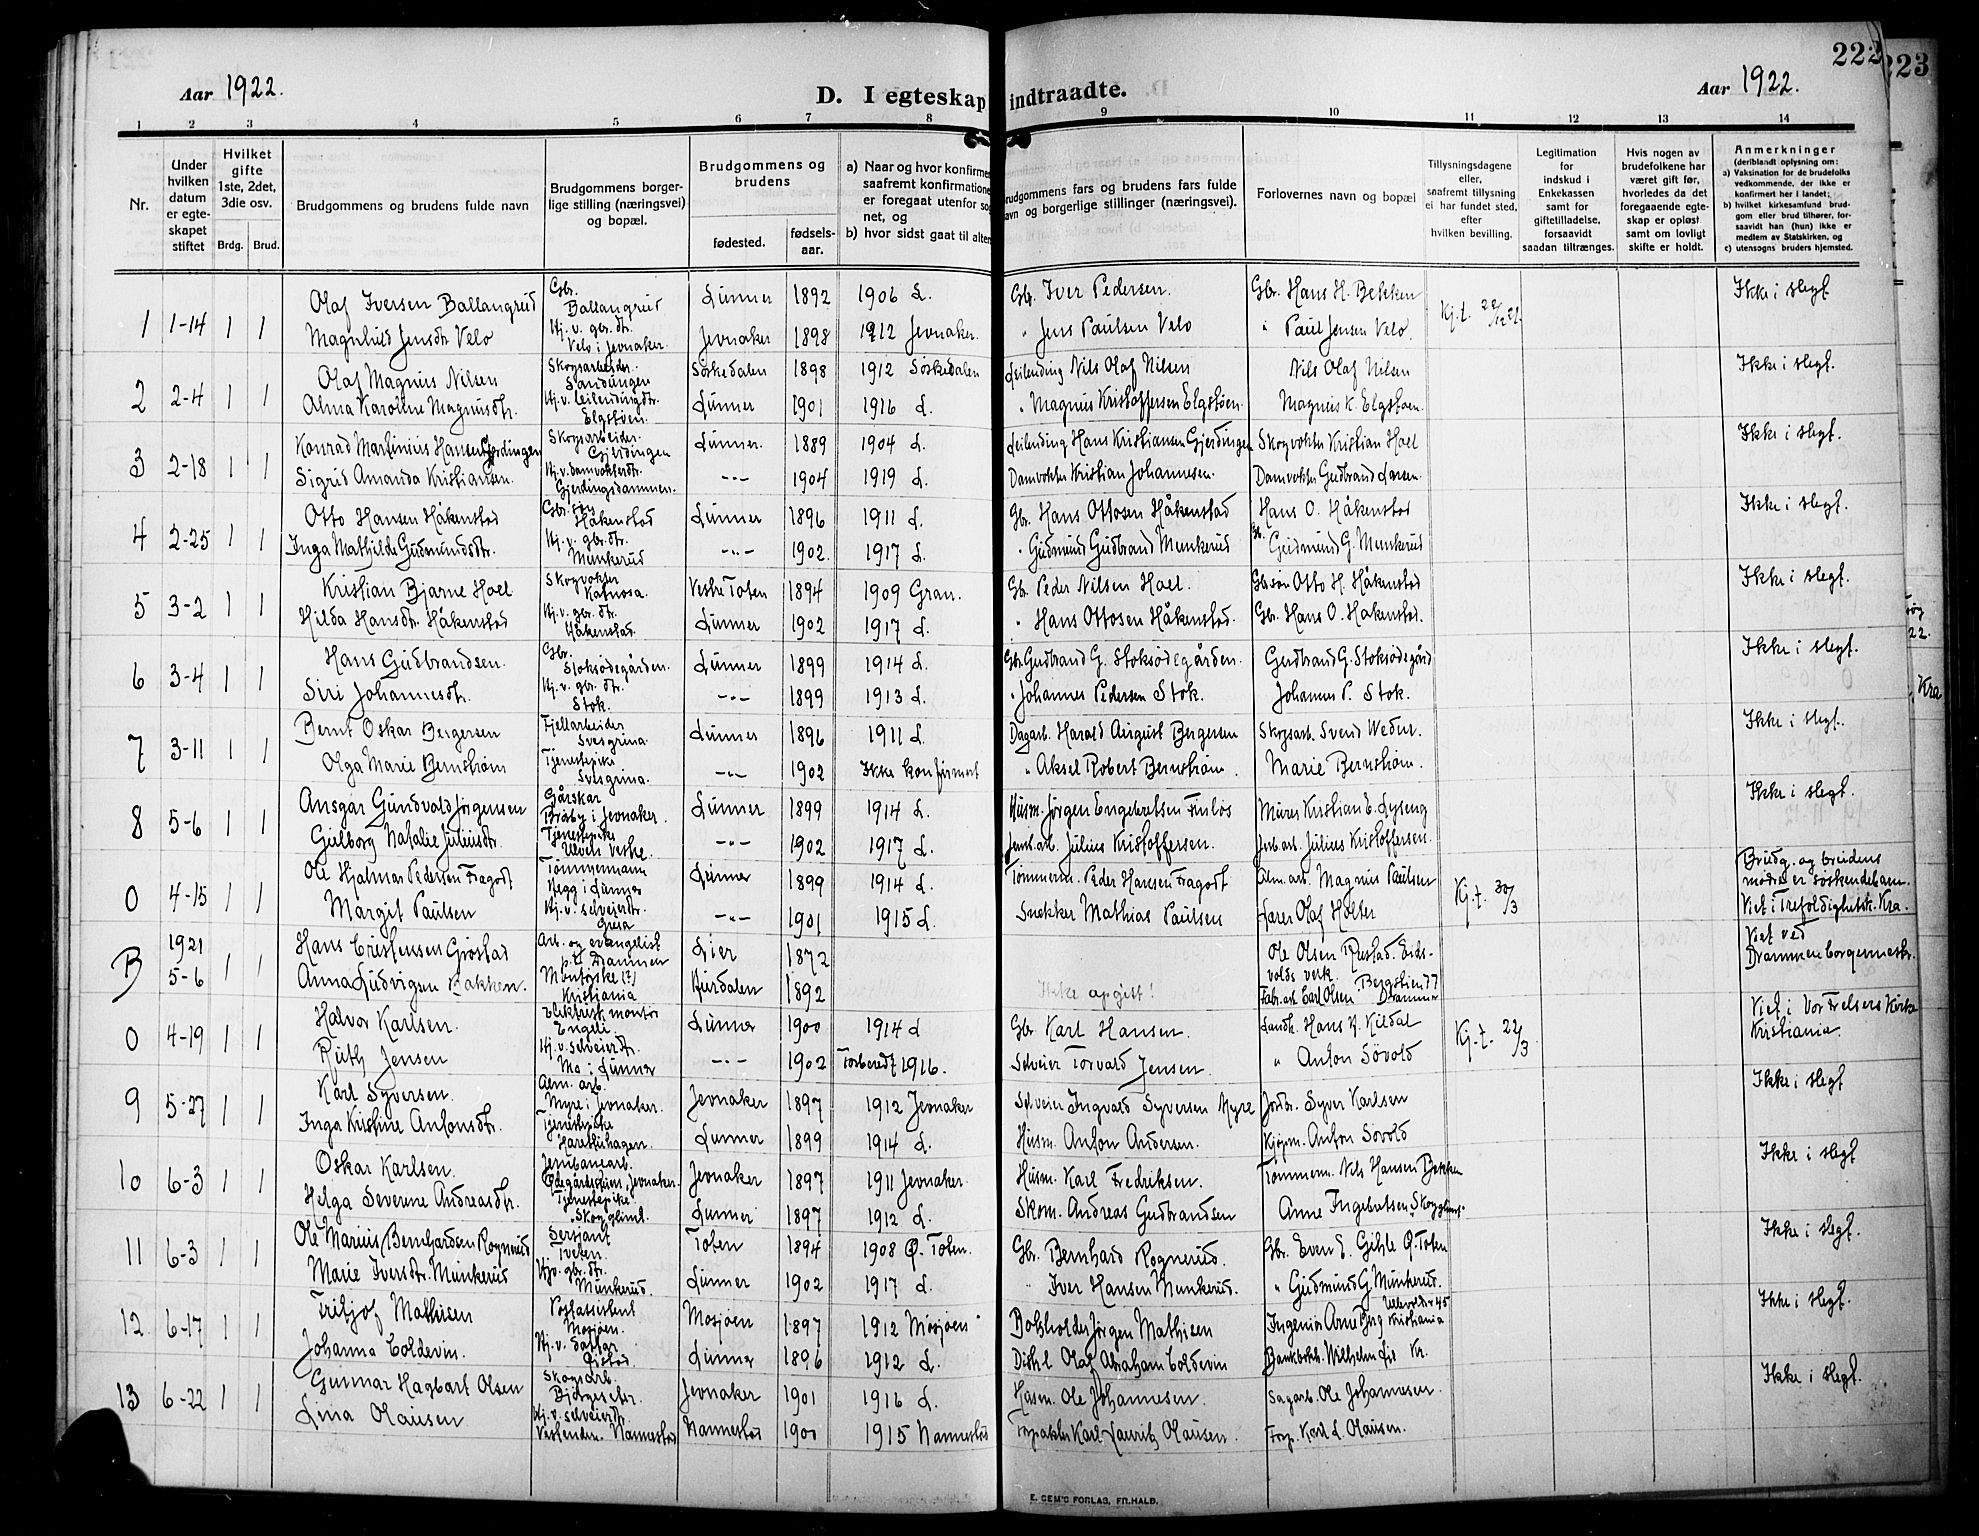 222
223
Aar 1922.
D. I egteskap indtraadte.
Aar 1922.
1 2 3 4 5 6 7 8 9 10 11 12 13 14
Nr.
Under hvilken datum er egteskapet stiftet
Hvilket gifte 1ste, 2det, 3die osv.
Brdg. Brud.
Brudgommens og brudens fulde navn
Brudgommens borgerlige stilling (næringsvei) og bopæl.
Brudgommens og brudens
fødested.
fødselsaar.
a) Naar og hvor konfirmer
saafremt konfirmatione
er foregaat utenfor so
net, og
b) hvor sidst gaat til alter
Brudgommens fars og brudens fars fulde
navn og borgerlige stillinger (næringsvei).
Forlovernes navn og bopæl
Tillysningsdagene eller, saafremt tillysning ei har fundet sted, efter hvilken bevilling.
Legitimation for indskud i Enkekassen samt for giftetilladelse, forsaavidt saadan tiltrænges.
Hvis nogen av brudefolkene har været gift før, hvorledes da det foregaaende egteskap er opløst samt om lovligt skifte er holdt.
Anmerkninger
(deriblandt oplysning om:
a) Vaksination for de brudefolks vedkommende, der ikke er konfirmert her i landet;
b) hvilket kirkesamfund brudgom eller brud tilhører, forsaavidt han (hun) ikke er medlem av Statskirken, og
c) utensogns bruders hjemsted.
1 1-14 1 1 Olaf Iversen Ballangrud Gbr. Ballangrud Lunner 1892 1906 L. Gbr. Iver Pedersen. Gbr. Hans H. Bekken Kj.t. 22/12 21. Ikke i slegt.
Magnhild Jensdtr Velo Hj.v. gbr. dtr. Velo i Jevnaker. Jevnaker 1898 1912 Jevnaker. " Jens Paulsen Velo " Paul Jensen Velo.
2 2-4 1 1 Olaf Magnus Nilsen Skogsarbeider. Sandungen Sørkedalen 1898 1912 Sørkedalen Leilending Nils Olaf Nilsen Nils Olaf Nilsen Ikke i slegt.
Alma Karoline Magnusdtr. Hj.v. leilendingdtr. Elgstøen. Lunner 1901 1916 L. " Magnus Kristoffersen Elgstøen. Magnus K. Elgstøen.
3 2-18 1 1 Konrad Martinius Hansen Gjerdingen Skogsarbeider. Gjerdingen Lunner. 1889 1904 L. Leilending Hans Kristiansen Gjerdingen Skogvokter Kristian Hoel Ikke i slegt.
Sigrid Amanda Kristiansen. Hj.v. damvokterdtr. Gjerdingsdammen. -"- 1904 1919 L. Damvokter Kristian Johannesen. Damvokter Gudbrand Larsen.
4 2-25 1 1 Otto Hansen Håkenstad Gbr. søn Håkenstad Lunner 1896 1911 L. Gbr. Hans Ottosen Håkenstad Hans O. Håkenstad Ikke i slegt.
Inga Mathilde Gudmundsdtr. Hj.v. gbr. dtr. Munkerud -"- 1902. 1917 L. " Gudmund Gudbrand Munkerud Gb. Gudmund G. Munkerud
5 3-2 1 1 Kristian Bjarne Hoel Skogvokter Katnosa. Vestre Toten 1894 1909 Gran. Gb. Peder Nilsen Hoel. Gb. søn Otto H. Håkenstad Ikke i slegt.
Hilda Hansdtr. Håkenstad Hj.v. gbr. dtr. Håkenstad. Lunner 1902 1917 L. " Hans Ottosen Håkenstad. Gbr. Hans O. Håkenstad.
6 3-4 1 1 Hans Gudbrandsen. Gbr. Stoksødegården. Lunner 1899 1914 L. Gbr. Gudbrand G. Stoksødegården. Gudbrand G. Stoksødegård Ikke i slegt.
Siri Johannesdtr. Hj.v. gbr. dtr. Stok. -"- 1899 1913 L. " Johannes Pedersen Stok. Johannes P. Stok.
7 3-11 1 1 Bernt Oskar Bergersen Fjellarbeider Svesgrina. Lunner 1896 1911 L. Dagarb. Harald August Bergersen Skogsarb. Svend Weder. Ikke i slegt.
Olga Marie Bernstrøm Tjenestepike Svesgrina. -"- 1902 Ikke konfirmert " Aksel Robert Bernstrøm. Marie Bernstrøm.
8 5-6 1 1 Ansgar Gundvald Jørgensen Gårskar Bråby i Jevnaker. Lunner 1899 1914 L. Husm. Jørgen Engebretsen Finlos Murer Kristian E. Lyseng Ikke i slegt.
Gulborg Natalie Juliusdtr. Tjenestepike -"- 1902 1917 L. Jernb. arb. Julius Kristoffersen. Jerb. arb. Julius Kristoffersen.
0 4-15 1 1 Ole Hjalmar Pedersen Fragodt Tømmermann Hegg i Lunner Lunner 1899 1914 L. Tømmerm. Peder Hansen Fragodt Alm. arb. Magnus Paulsen Kj.t. 30/3 Brudg. og brudens mødre er søskendebarn.
Margit Paulsen Hj.v. selveierdtr. Grua -"- 1901 1915 L. Snekker Mathias Paulsen Lærer Olaf Holter Viet i Trefoldighetsk. Kra.
B 1921 5-6 1 1 Hans Cristensen Grøstad Arb. og evangelist p.t. Drammen Lier 1872 Ole Olsen Rustad. Eidsvolds verk. Viet ved Drammens borgermester.
Anna Ludvigsen Bakken. Kristiania Hurdalen 1892 Ikke opgitt! Fabr. arb. Carl Olsen Bergstien 77 Drammen
0 4-19 1 1 Halvor Karlsen. Elektrisk montør Engeli. Lunner 1900 1914 L Gbr Karl Hansen. Landh. Hans K. Kildal Kj.t. 22/3 Viet i Vor Frelsers Kirke Kristiania.
Ruth Jensen Hj.v. selveierdtr. Mo i Lunner -"- 1902 Torberedt 1916. Selveier Torvald Jensen. " Anton Søvold
9 5-27 1 1 Karl Syversen. Alm. arb. Myre i Jevnaker. Jevnaker 1897 1912 Jevnaker Selveier Ingvald Syversen Myre Jordbr. Syver Karlsen Ikke i slegt
Inga Kristine Antonsdtr. Tjenestepike Harestuhagen. Lunner 1899 1914 L. Husm. Anton Andersen. Kjøpm. Anton Søvold
10 6-3 1 1 Oskar Karlsen. Jernbanearb. Ødegårdstuen, Jevnaker. Jevnaker 1897 1911 Jevnaker. Husm. Karl Fredriksen. Tømmerm. Nils Hansen Bekken Ikke i slegt
Helga Severine Andreasdtr. Tjenestepike. "Skogglimt. Lunner 1897 1912 L. Skom. Andreas Gudbrandsen Anne Ingebretsen "Skogglimt"
11 6-3 1 1 Ole Marius Bernhardsen Rognerud Sersjant Tveten. Toten 1894 1908 Ø. Toten. Gbr. Bernhard Rognerud. Gbr. Even E. Gihle Ø. Toten Ikke i slegt.
Marie Iversdtr. Munkerud Hjv. gbr. dtr. Munkerud. Lunner 1902 1917 L. " Iver Hansen Munkerud. " Gudmund G. Munkerud.
12 6-17 1 1 Fritjof Mathisen Postassistent Mosjøen. Mosjøen 1897 1912 Mosjøen. Bokholder Jørgen Mathisen Ingeniør Arne Berg Ullevoldsv. 45 Kristiania Ikke i slegt.
Johanna Coldevin. Hj.v. datter Lunner 1896 1912 L. Distr. l. Olaf Abraham Coldevin Bankbokh. Wilhelm Lie Kr.
13 6-22 1 1 Gunnar Hagbart Olsen Skogsarb. Bjørgeseter. Jevnaker 1901 1916 L. Husm. Ole Johannesen. Sagarb. Ole Johannesen. Ikke i slegt.
Lina Olausen Hj.v. selveierdtr. Vestenden. Nannestad Nannestad 1900 1915 Nannestad Forpakter Karl Lauritz Olausen. Forp. Karl L. Olausen.
22.
, Kra
E. SEM'S FORLAG, FR.HALD.